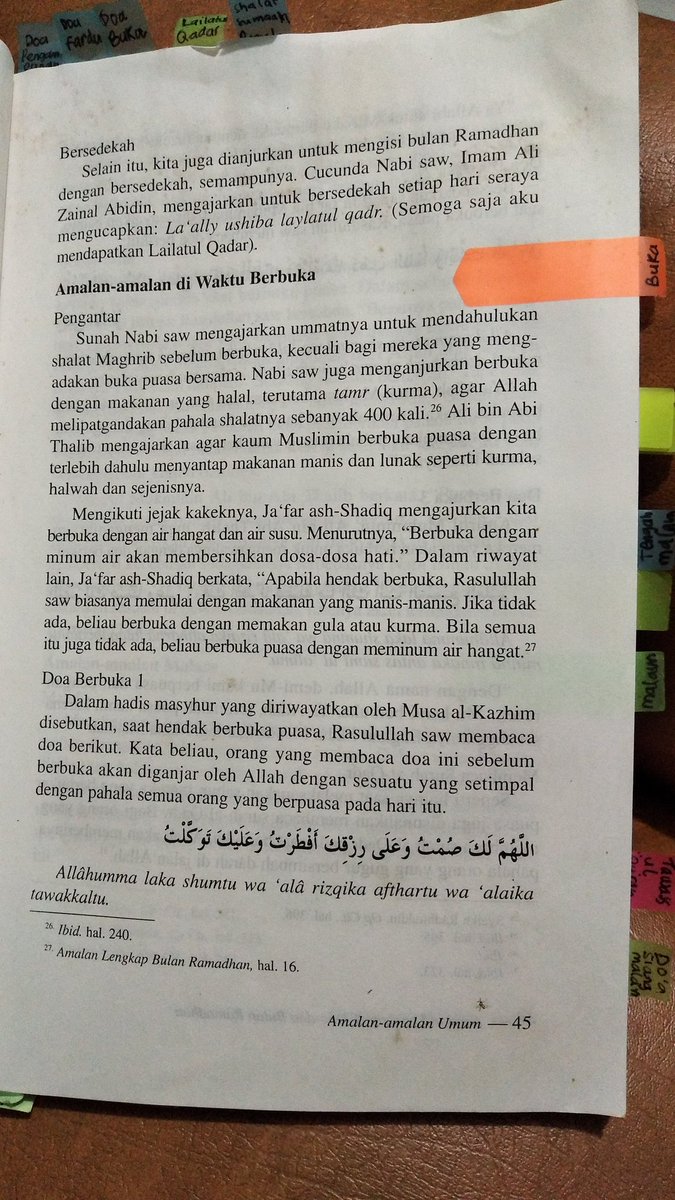 Doa
Pengam
Doa
Fardu
Doa
Buka
Lailatul
Qadar
shalat
Bersedekah
Selain itu, kita juga dianjurkan untuk mengisi bulan Ramadhan
dengan bersedekah, semampunya. Cucunda Nabi saw, Imam Ali
Zainal Abidin, mengajarkan untuk bersedekah setiap hari seraya
mengucapkan: La‘ally ushiba laylatul qadr. (Semoga saja aku
mendapatkan Lailatul Qadar).
Buka
Amalan-amalan di Waktu Berbuka
Pengantar
Sunah Nabi saw mengajarkan ummatnya untuk mendahulukan
shalat Maghrib sebelum berbuka, kecuali bagi mereka yang meng-
adakan buka puasa bersama. Nabi saw juga menganjurkan berbuka
dengan makanan yang halal, terutama tamr (kurma), agar Allah
melipatgandakan pahala shalatnya sebanyak 400 kali.26 Ali bin Abi
Thalib mengajarkan agar kaum Muslimin berbuka puasa dengan
terlebih dahulu menyantap makanan manis dan lunak seperti kurma,
halwah dan sejenisnya.
Mengikuti jejak kakeknya, Ja‘far ash-Shadiq mengajurkan kita
berbuka dengan air hangat dan air susu. Menurutnya, “Berbuka dengan
minum air akan membersihkan dosa-dosa hati.” Dalam riwayat
lain, Ja‘far ash-Shadiq berkata, “Apabila hendak berbuka, Rasulullah
saw biasanya memulai dengan makanan yang manis-manis. Jika tidak
ada, beliau berbuka dengan memakan gula atau kurma. Bila semua
itu juga tidak ada, beliau berbuka puasa dengan meminum air hangat.27
Tengah
malam
malam
Doa Berbuka 1
Dalam hadis masyhur yang diriwayatkan oleh Musa al-Kazhim
disebutkan, saat hendak berbuka puasa, Rasulullah saw membaca
doa berikut. Kata beliau, orang yang membaca doa ini sebelum
berbuka akan diganjar oleh Allah dengan sesuatu yang setimpal
dengan pahala semua orang yang berpuasa pada hari itu.
اللَّهُمَّ لَكَ صُمْتُ وَعَلَى رِزْقِكَ أَفْطَرْتُ وَعَلَيْكَ تَوَكَّلْتُ
Allâhumma laka shumtu wa ‘alâ rizqika afthartu wa ‘alaika
tawakkaltu.
26. Ibid. hal. 240.
27. Amalan Lengkap Bulan Ramadhan, hal. 16.
Do'a
siang
malam
Amalan-amalan Umum — 45